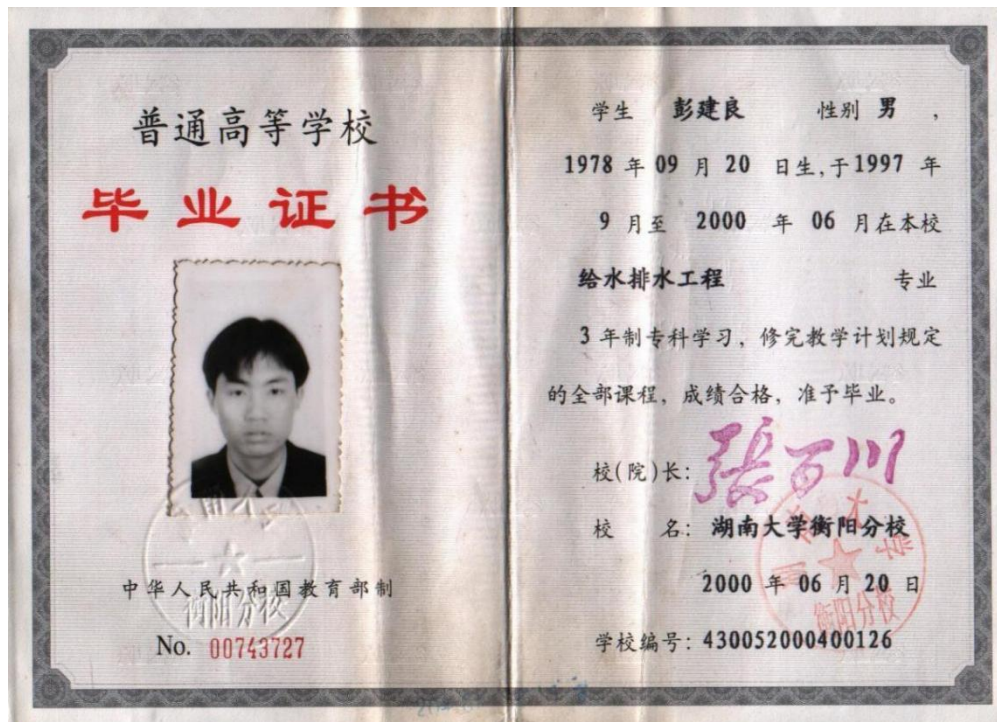 普通高等学校
毕业证书
中华人民共和国教育部制
No. 00743727
学生 彭建良 性别 男 ,
1978 年 09 月 20 日生,于 1997 年
9 月至 2000 年 06 月在本校
给水排水工程 专业
3 年制专科学习，修完教学计划规定
的全部课程，成绩合格，准予毕业。
校(院)长: 張百川
校 名: 湖南大学衡阳分校
2000 年 06 月 20 日
学校编号: 430052000400126
衡阳分校
衡阳分校